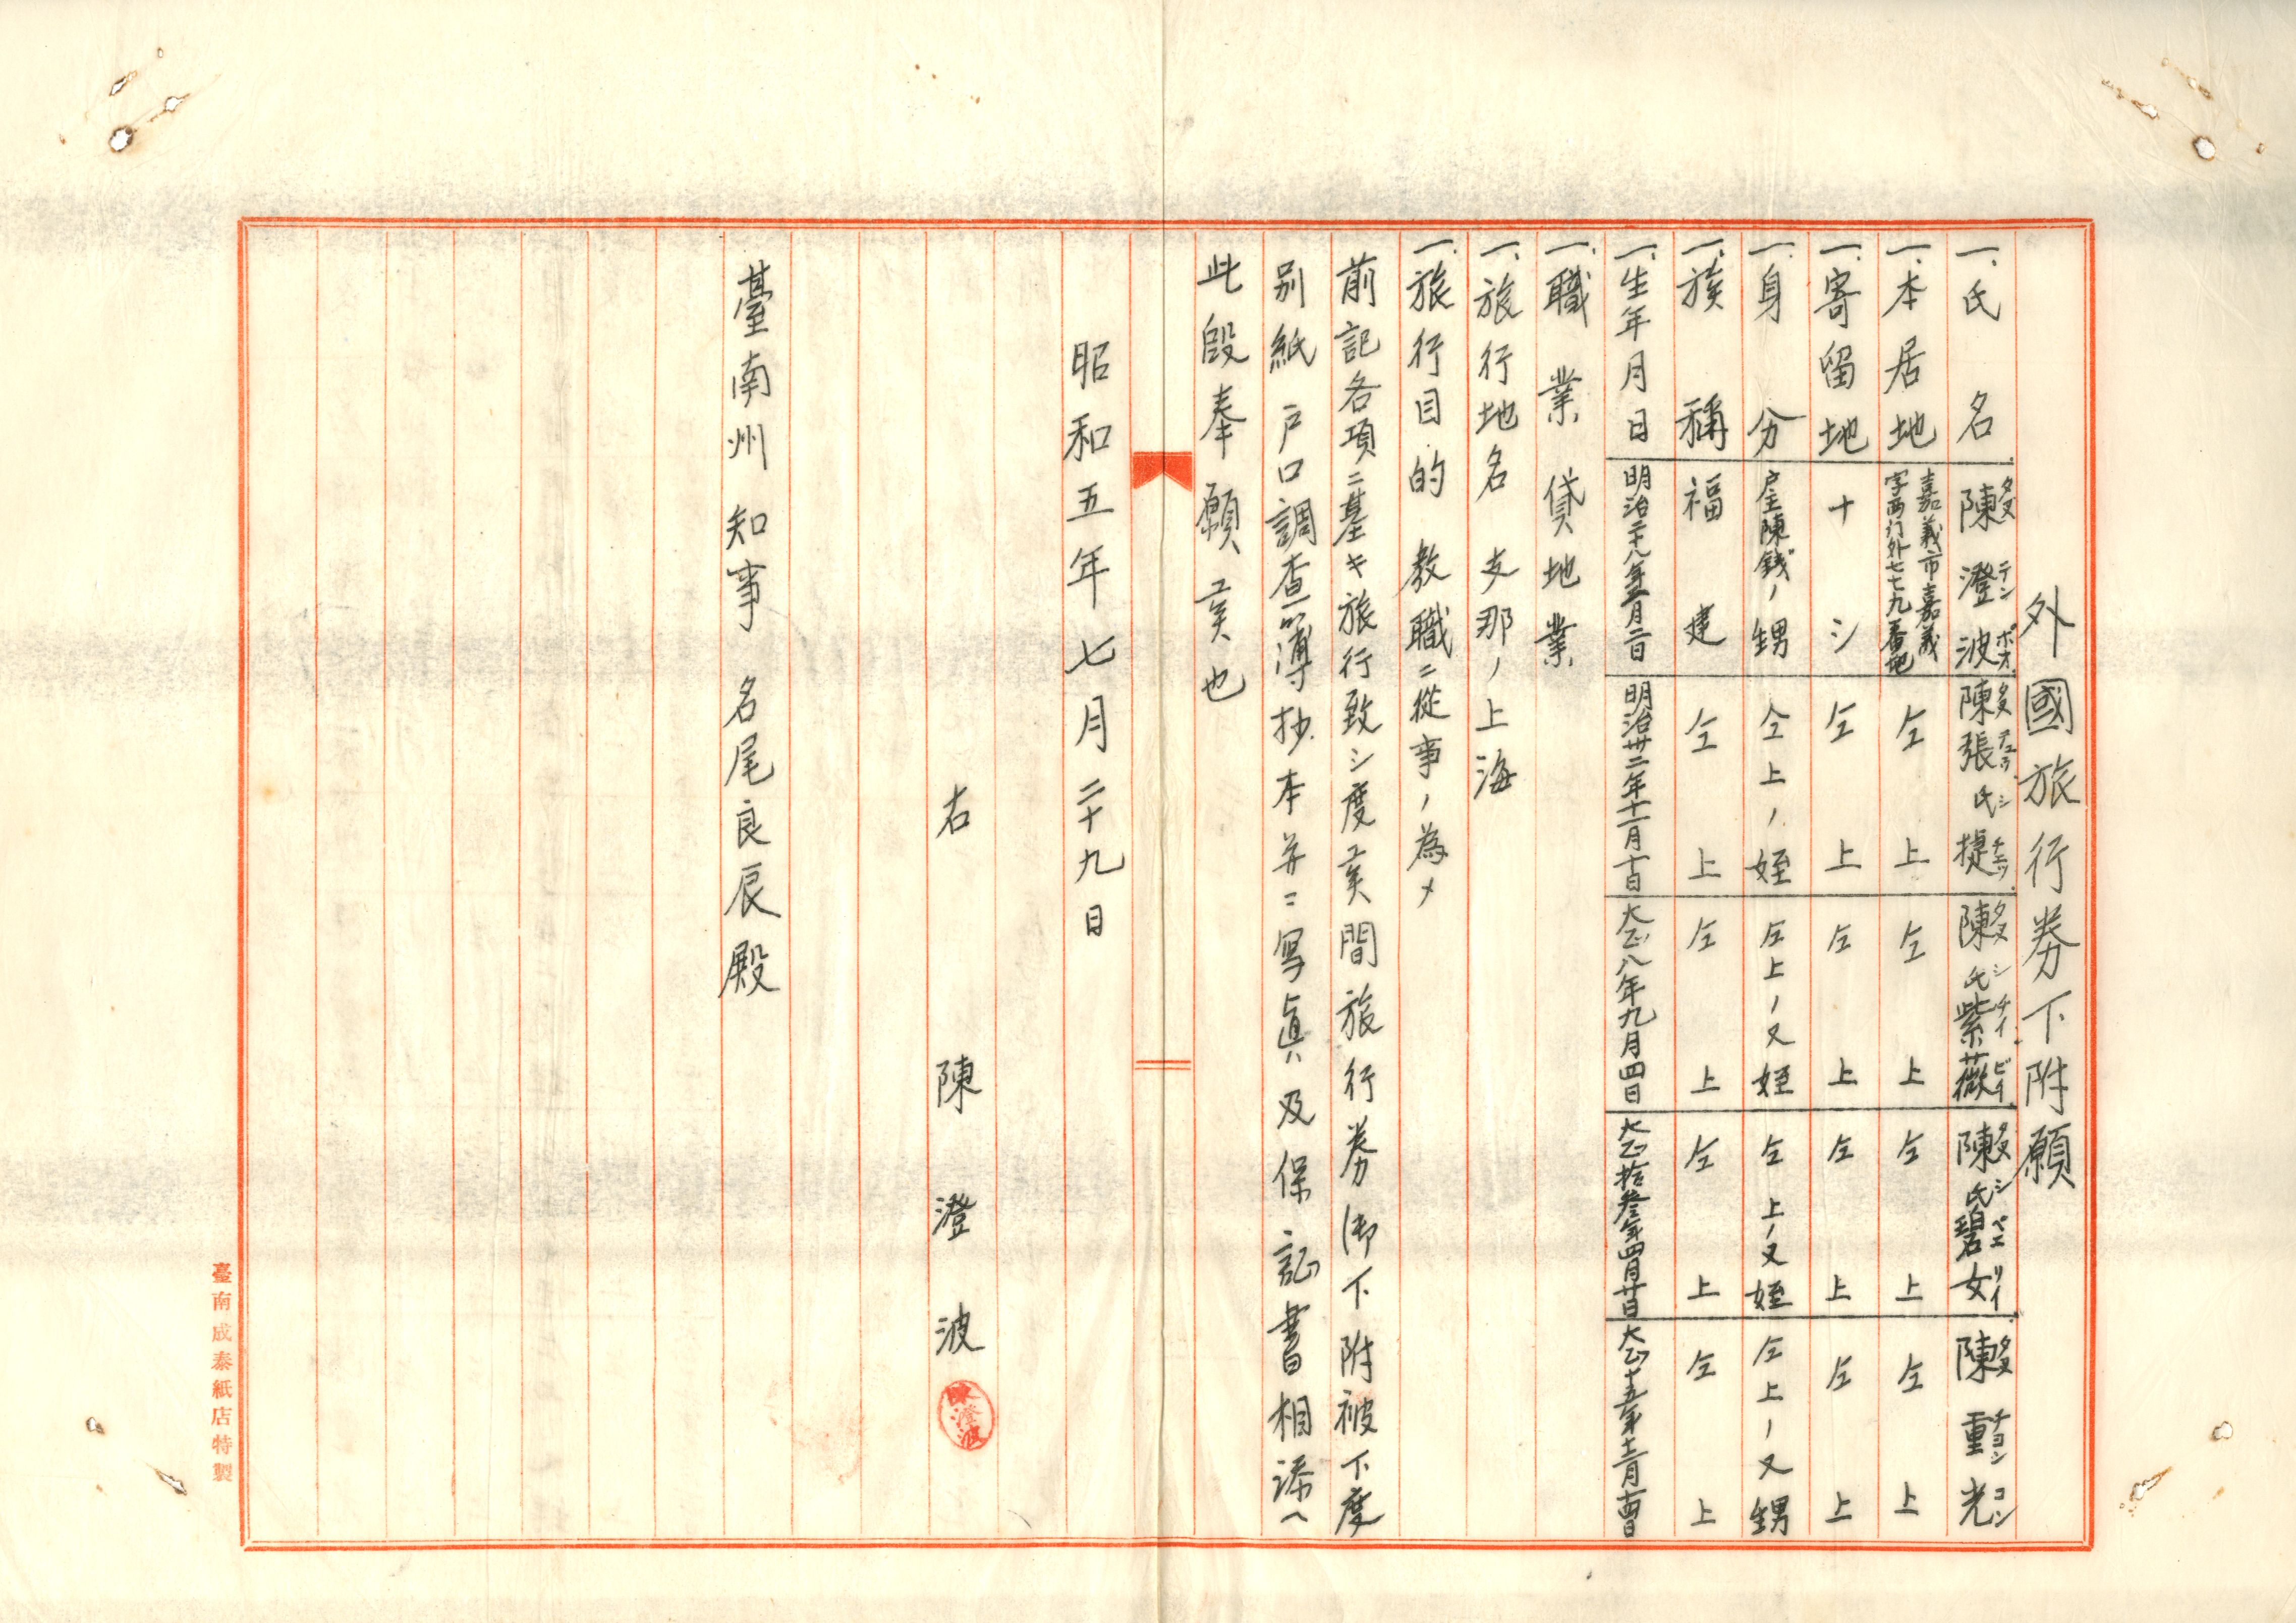 外國旅行券下附願
一、氏名 陳澄波 陳張氏捷 陳氏紫薇 陳氏碧女 陳重光
タヌ テン ポオ タヌ テユウ シ チエツ タヌ シ チイ ビイ タヌ シ ペエ リイ タヌ チヨン コン
一、本居地 嘉義市嘉義字西門外七七九番地 仝上 仝上 仝上 仝上
一、寄留地 ナシ 仝上 仝上 仝上 仝上
一、身分 戸主陳錢ノ甥 仝上ノ姪 仝上ノ又姪 仝上ノ又姪 仝上ノ又甥
一、族稱 福建 仝上 仝上 仝上 仝上
一、生年月日 明治二十八年二月二日 明治卅二年十一月十日 大正八年九月四日 大正拾叁年四月廿日 大正十五年十二月十四日
一、職業 貸地業
一、旅行地名 支那ノ上海
一、旅行目的 教職ニ從事ノ為メ
前記各項ニ基キ旅行致シ度候間旅行券御下附被下度
別紙戸口調査簿抄本并ニ寫眞及保証書相添ヘ
此段奉願候也
昭和五年七月二十九日
右 陳澄波
陳澄波
臺南州知事 名尾良辰殿
臺南成泰紙店特製